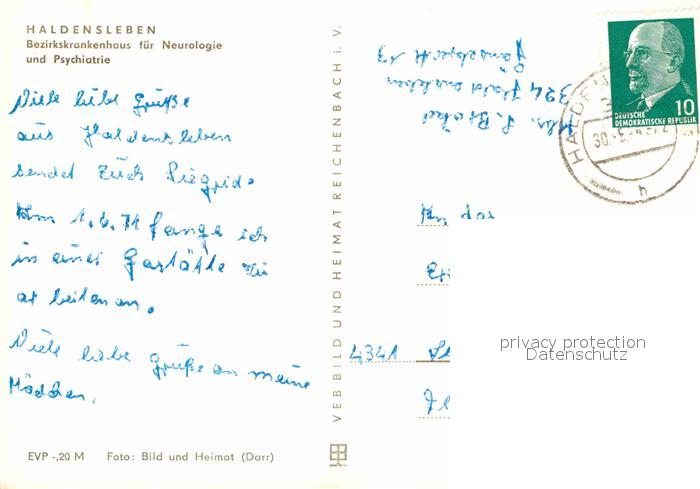 HALDENSLEBEN
Bezirkskrankenhaus für Neurologie
und Psychiatrie
Viele liebe Grüße
aus Haldensleben
sendet Euch Siegrid.
Am 1.6.71 fange ich
in einer Gastätte zu
arbeiten an.
Viele liebe grüße an meine
Mädchen.
EVP -,20 M Foto: Bild und Heimat (Darr)
VEB BILD UND HEIMAT REICHENBACH i. V.
Abs. S.
324 Haldensleben
13
10
DEUTSCHE
DEMOKRATISCHE REPUBLIK
HALDEN
30.
h
An
4341
privacy protection
Datenschutz